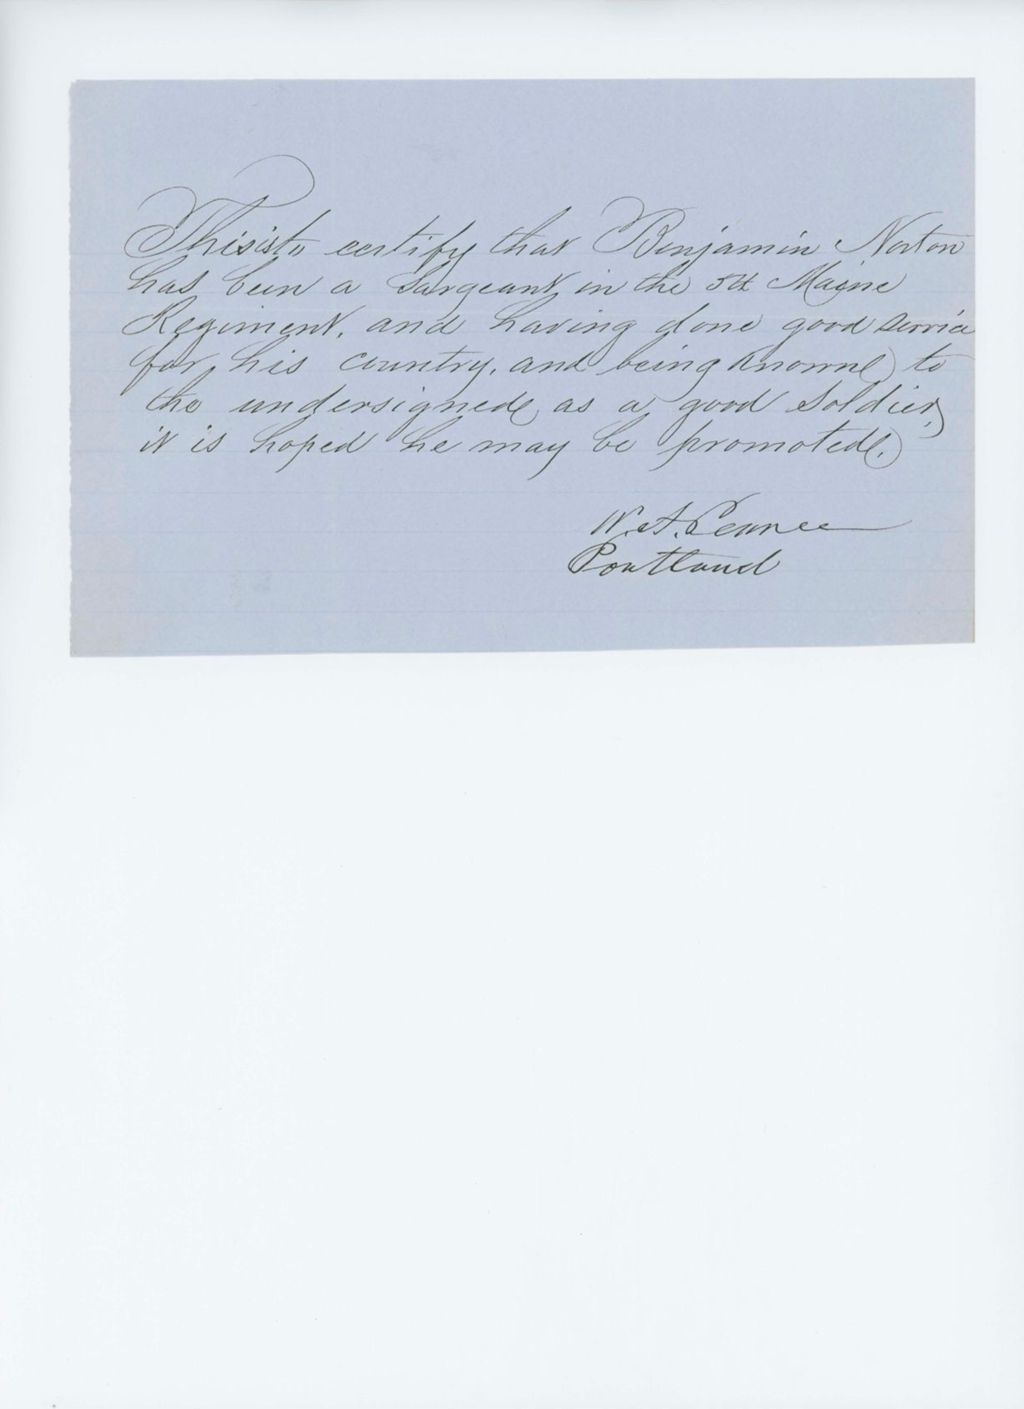 This is to certify that Benjamin Norton
has been a Sargeant in the 5th Maine
Regiment, and having done good service
for his country, and being known to
the undersigned as a good Soldier,
it is hoped he may be promoted.
W. A. Pearce
Portland